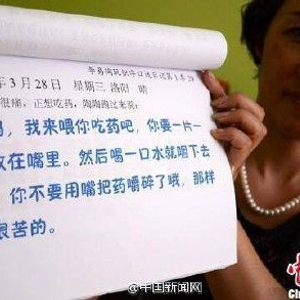 年3月28日 星期三 洛阳 晴
很痛,正想吃药,陶陶跑过来说:
,我来喂你吃药吧,你要一片一
放在嘴里。然后喝一口水就咽下去
你不要用嘴把药嚼碎了哦,那样
很苦的。
@中国新闻网